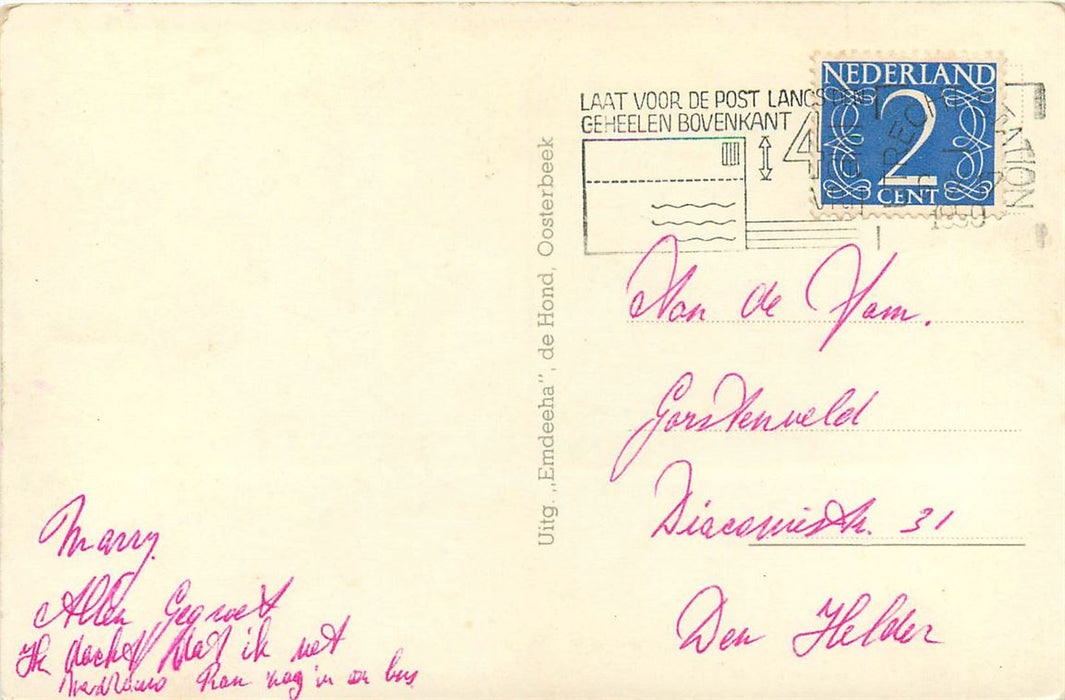 LAAT VOOR DE POST LANGS DEN
GEHEELEN BOVENKANT 4
NEDERLAND
2
CENT
UTRECHT STATION
1950
Uitg. „Emdeeha”, de Hond, Oosterbeek
Aan de Fam.
Gorstenveld
Diaconiestr. 31
Den Helder
Marry.
Allen Gegroet
Ik dacht dat ik net
kan nog in en bus